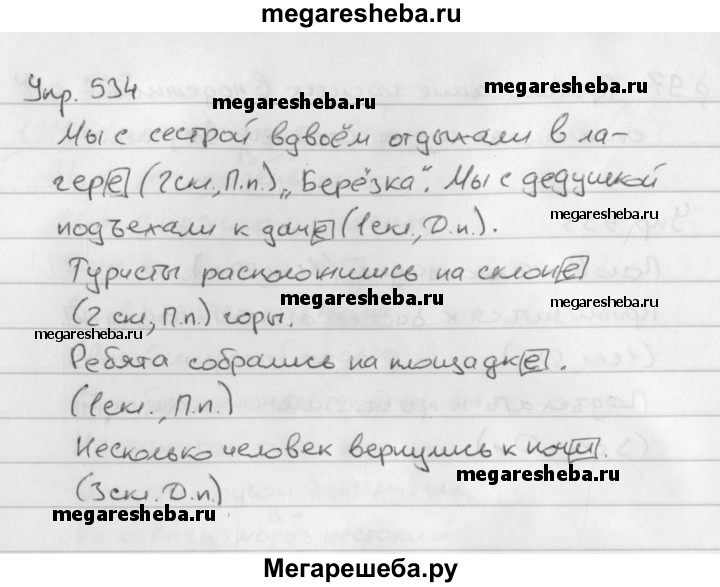 megaresheba.ru
Упр. 534
megaresheba.ru
megaresheba.ru
Мы с сестрой вдвоём отдыхали в ла-
гере (2скл, П.п.) „Берёзка". Мы с дедушкой
megaresheba.ru
megaresheba.ru
подъехали к даче (1скл., Д.п.).
Туристы расположились на склоне
megaresheba.ru
(2 скл, П.п.) горы.
megaresheba.ru
megaresheba.ru
Ребята собрались на площадке.
(1скл., П.п.)
Несколько человек вернулись к ночи.
megaresheba.ru
(3скл. Д.п.)
megaresheba.ru
Мегарешеба.ру